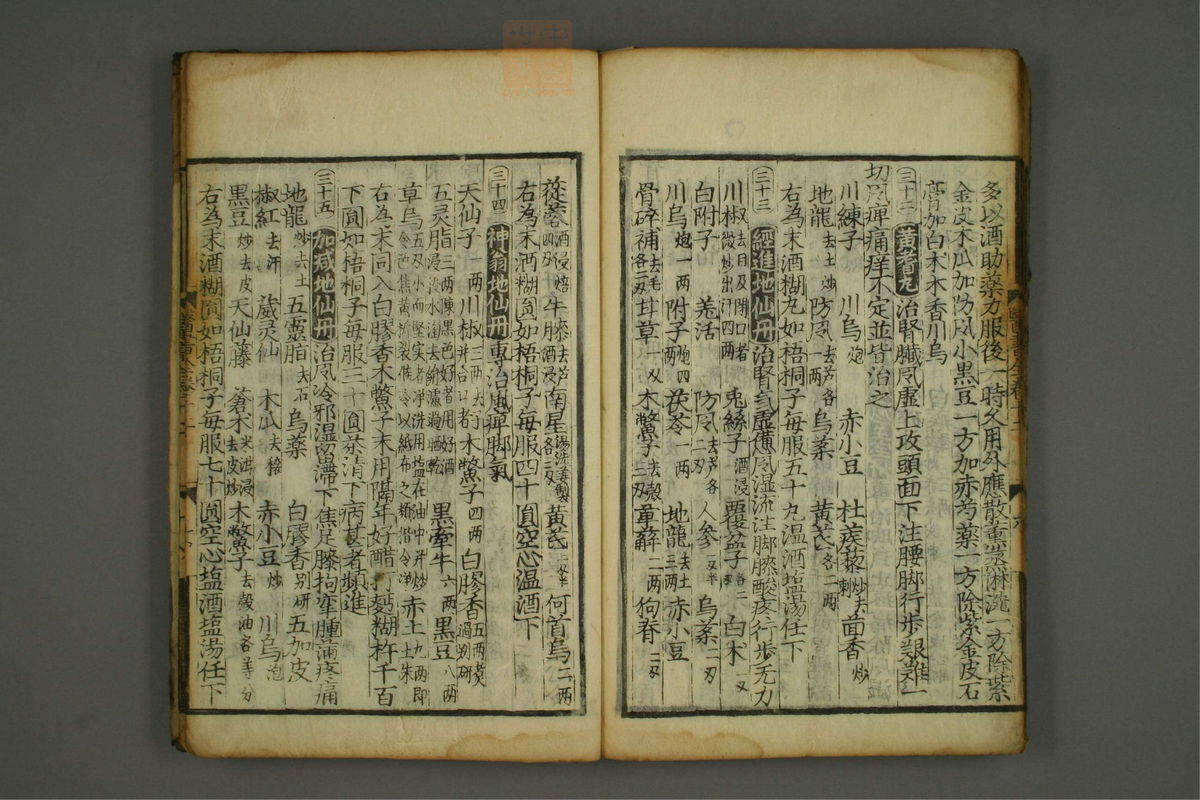 多以酒助藥力服後一時久用外應散薰㵼淋洗一方除紫
金皮木瓜加防风小黑豆一方加赤芍藥一方除紫金皮石
膏加白木木香川乌
三十二 黃耆丸 治腎臟风虛上攻頭面下注腰脚行步艱難一
切风痺痛痒不定並皆治之
川練子 川烏炮 赤小豆 杜疾藜炒去刺 茴香炒
地龍去土炒 防风去芦各一两 烏薬 黃芪各二两
右為末酒糊丸如梧桐子每服五十丸温酒塩湯任下
三十三 經進地仙丹 治腎氣虛憊风湿流注脚膝酸疼行步无力
川椒去目及閉口者微炒出汗四两 兎絲子酒浸 覆盆子各二 白木一又
白附子 羌活 防风去芦各 人參一又半 烏薬二又
川烏炮一两 附子炮四两 茯苓一两 地龍去土三两 赤小豆
骨碎補去毛各二又 甘草一又 木鱉子去殼三又 萆薢二两 狗脊二又
蓯蓉酒浸焙四又 牛膝去芦酒浸 南星湯洗姜製各三又 黃芪一又半 何首烏二两
右為末酒糊圓如梧桐子每服四十圓空心温酒下
三十四 神翁地仙丹 專治风痺脚氣
天仙子一两 川椒三两去汀并合口者 木鱉子四两 白膠香五两煑過別研
五灵脂三两陳黒色好者用好酒浸淡水淘去 黒牽牛六两 黒豆八两
草烏五又小而堅実者净洗用塩在油中并炒 赤土九两即土朱
右為末同入白膠香木鱉子末用隔年好醋打麪糊杵千百
下圓如梧桐子每服三十圓茶清下病甚者頻進
三十五 加减地仙丹 治风冷邪湿畱滯下焦足膝拘攣腫滿疼痛
地龍炒去土 五靈脂去石 烏薬 白膠香別研 五加皮
椒紅去汗 葳灵仙 木瓜去穣 赤小豆炒 川烏炮
黒豆炒去皮 天仙藤 蒼木米泔浸去皮炒 木鱉子去殼油各等分
右為末酒糊圓如梧桐子每服七十圓空心塩酒塩湯任下